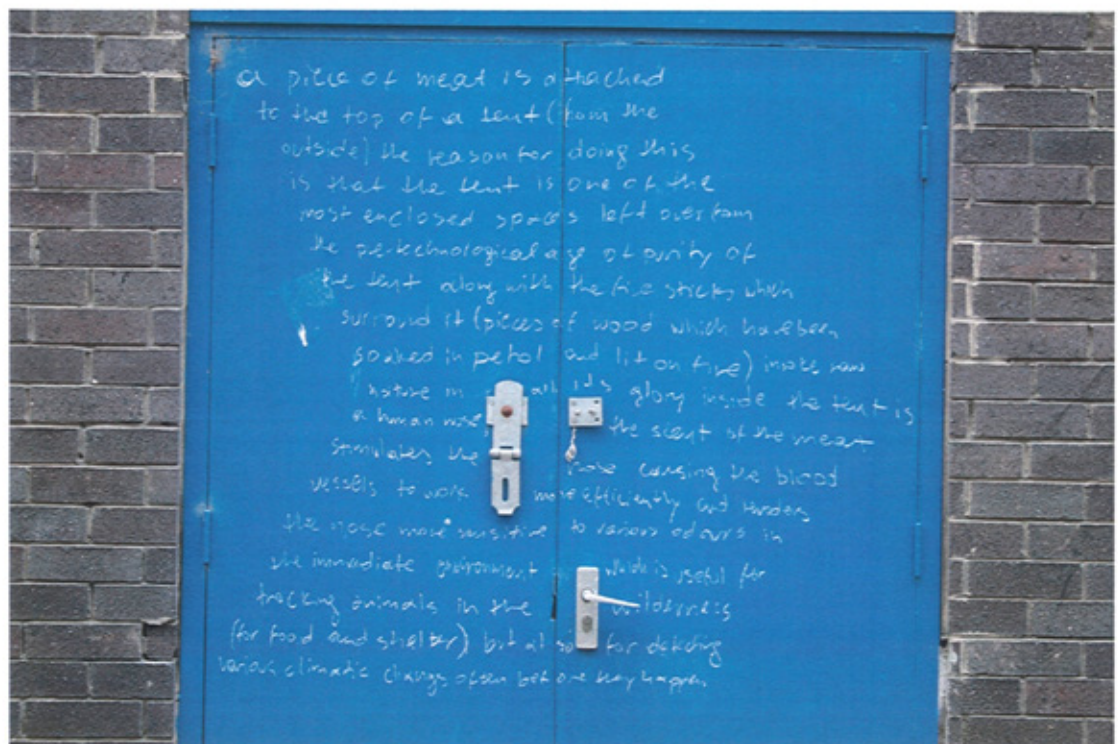 a piece of meat is attached
to the top of a tent (from the
outside) the reason for doing this
is that the tent is one of the
most enclosed spaces left over from
the pretechnological age of
the tent along with the fire sticks which
surround it (pieces of wood which have been
soaked in petrol and lit on fire)
nature in all its glory inside the tent is
a human nose, the scent of the meat
stimulates the nose causing the blood
vessels to work more efficiently and renders
the nose more sensitive to various odours in
the immediate environment which is useful for
tracking animals in the wilderness
(for food and shelter) but also for detecting
various climatic changes often before they happen